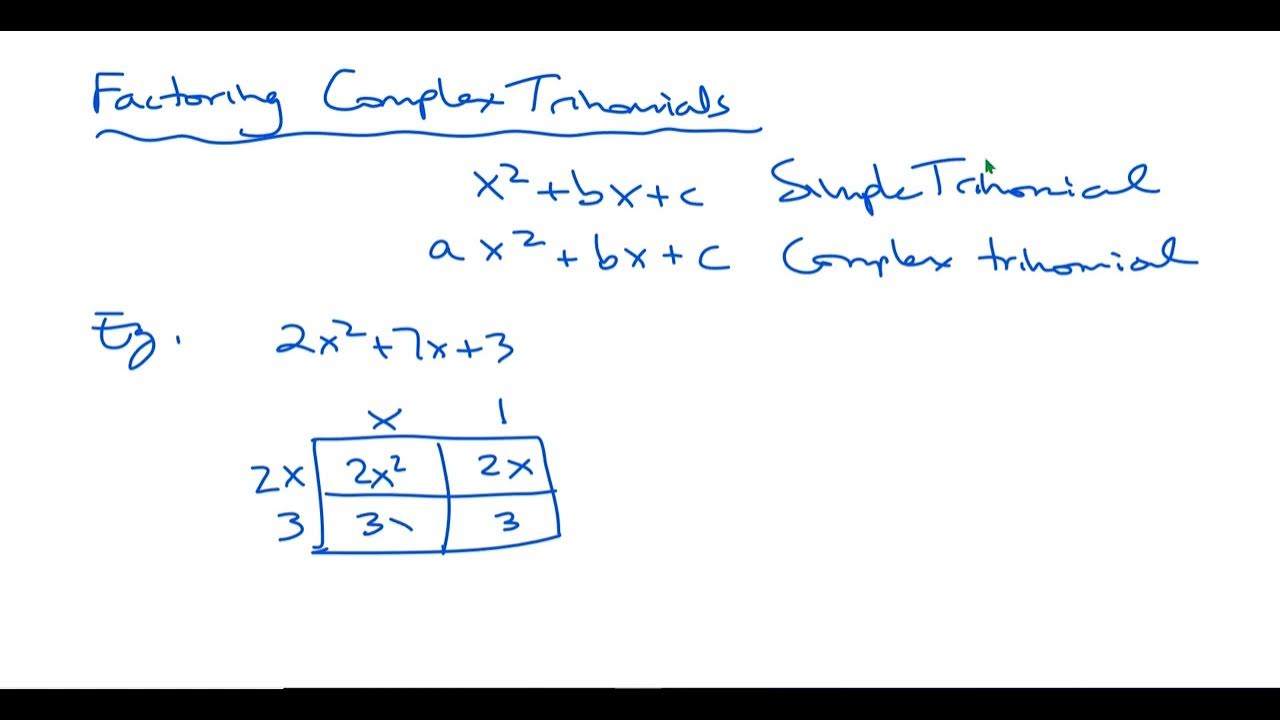 Factoring Complex Trinomials
x² + bx + c Simple Trinomial
ax² + bx + c Complex trinomial
Eg. 2x² + 7x + 3
x 1
2x 2x² 2x
3 3x 3